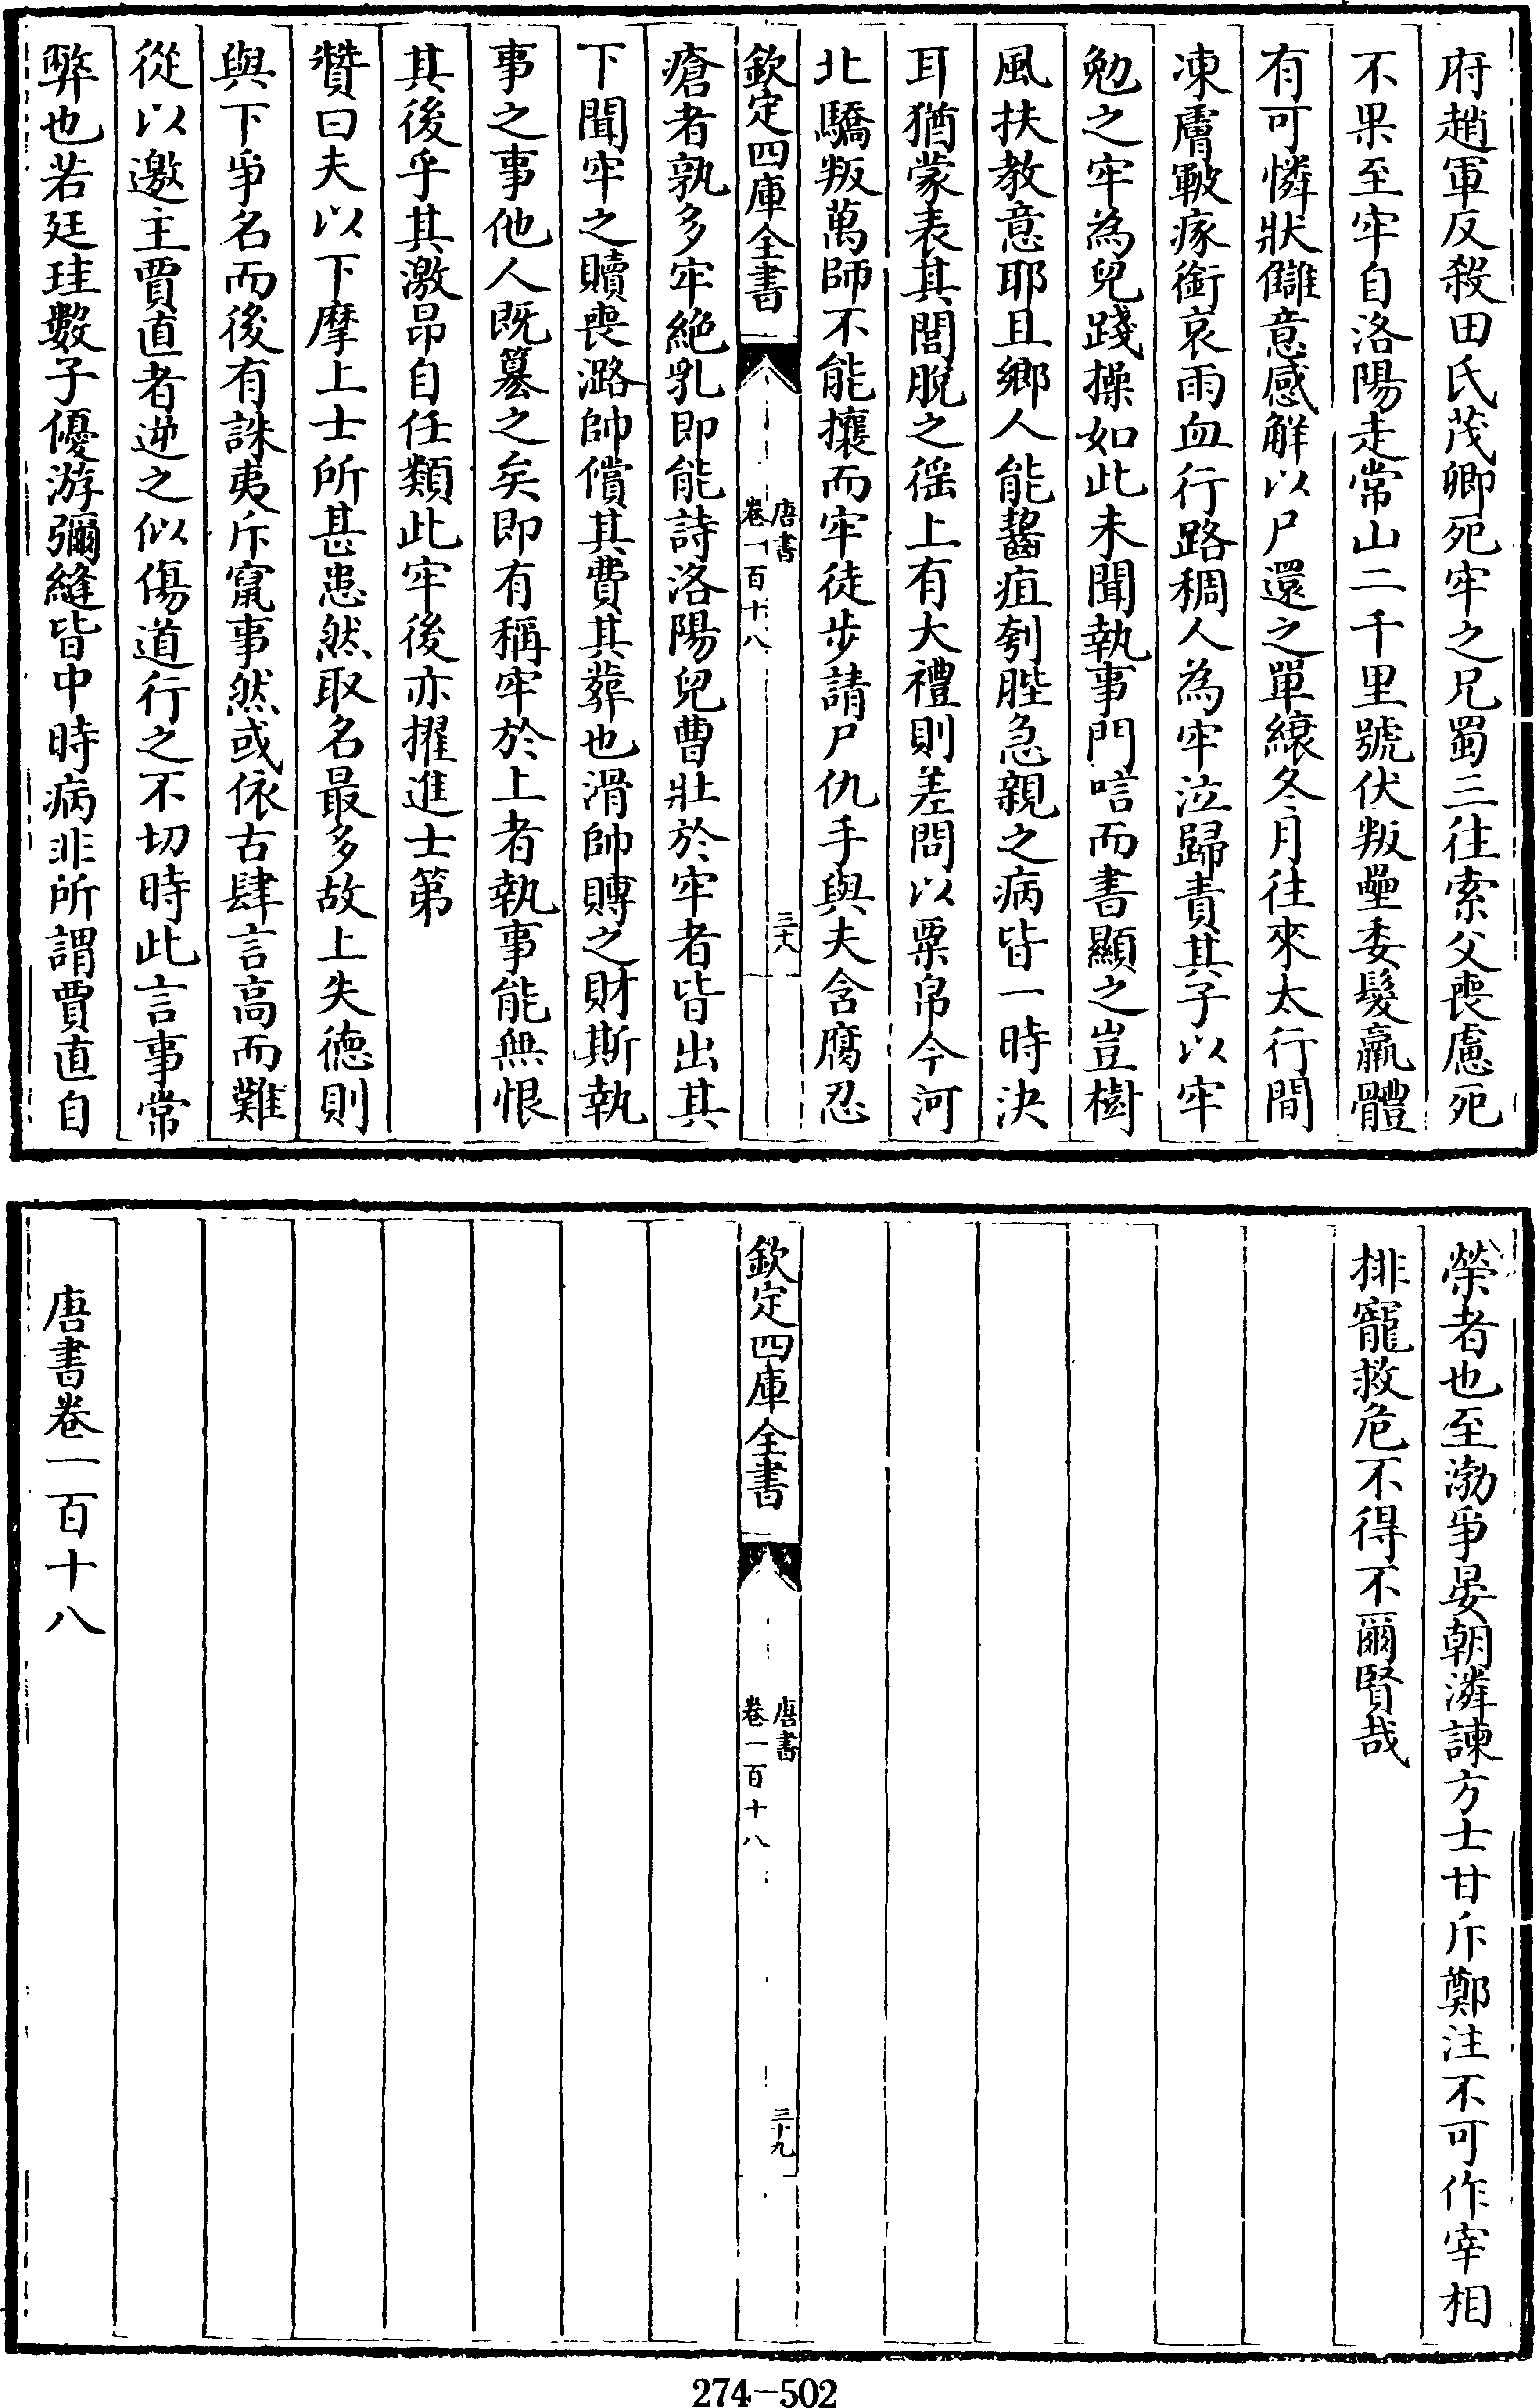 府趙軍反殺田氏茂卿死牢之兄蜀三往索父喪慮死
不果至牢自洛陽走常山二千里號伏叛壘委髮羸體
有可憐狀讎意感解以尸還之單縗冬月往來太行間
凍膚皸瘃銜哀雨血行路稠人為牢泣歸責其子以牢
勉之牢為兒踐操如此未聞執事門唁而書顯之豈樹
風扶教意耶且鄉人能齧疽刳胵急親之病皆一時決
耳猶蒙表其閭脫之徭上有大禮則差問以粟帛今河
北驕叛萬師不能攘而牢徒步請尸仇手與夫含腐忍
欽定四庫全書
唐書
卷一百十八
三十八
瘡者孰多牢絶乳即能詩洛陽兒曹壯於牢者皆出其
下聞牢之贖喪潞帥償其費其葬也滑帥賻之財斯執
事之事他人既篡之矣即有稱牢於上者執事能無恨
其後乎其激昂自任類此牢後亦擢進士第
贊曰夫以下摩上士所甚患然取名最多故上失德則
與下爭名而後有誅夷斥竄事然或依古肆言高而難
從以邀主賈直者逆之似傷道行之不切時此言事常
弊也若廷珪數子優游彌縫皆中時病非所謂賈直自
榮者也至渤爭晏朝潾諫方士甘斥鄭注不可作宰相
排寵救危不得不爾賢哉
欽定四庫全書
唐書
卷一百十八
三十九
唐書卷一百十八
274-502